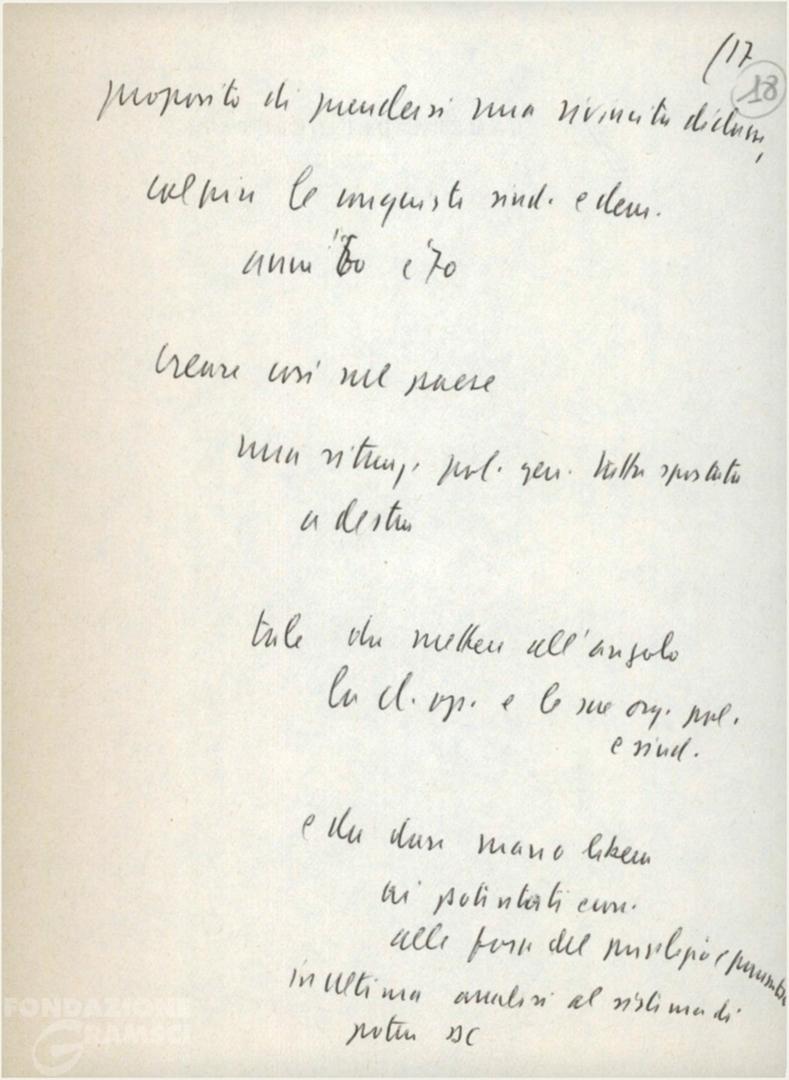 (17
18
proposito di prendersi una rivincita di classe,
colpire le conquiste sind. e dem.
anni '60 e '70
creare così nel paese
una situaz. pol. gen. tutta spostata
a destra
tale da mettere all'angolo
la cl. op. e le sue org. pol.
e sind.
e da dare mano libera
ai potentati econ.
alle forze del privilegio e
in ultima analisi al sistema di
potere DC
FONDAZIONE
GRAMSCI